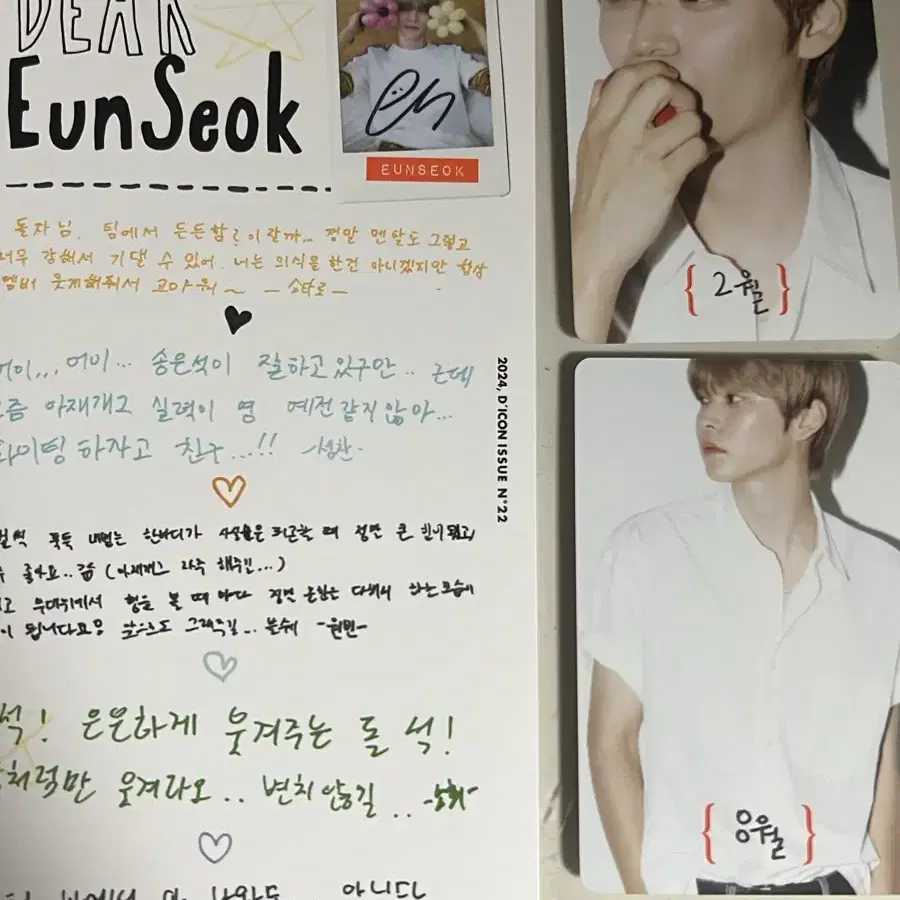 DEAR
EunSeok
en
EUNSEOK
돌자님. 팀에서 든든함?이랄까... 정말 멘탈도 그렇고
너무 강해서 기댈 수 있어. 너는 의식을 한건 아니겠지만 항상
멤버 웃게해줘서 고마워~ -쇼타로-
어이,,,어이... 송은석이 잘하고있구만.. 근데
요즘 아재개그 실력이 영 예전같지않아...
화이팅하자고 친구...!! -성찬-
툭툭 내뱉는 한마디가 사실은 피곤할 때 정말 큰 힘이 되고
좋아요.. (아재개그 자주 해주민...)
무대위에서 형을 볼 때마다 하는모습에
됩니다요 앞으로도 그래주길... -원빈-
석! 은은하게 웃겨주는 돌석!
처럼만 웃겨라오.. 변치않길..
아니다
2024, D'ICON ISSUE N°22
{ 2월 }
{ 8월 }